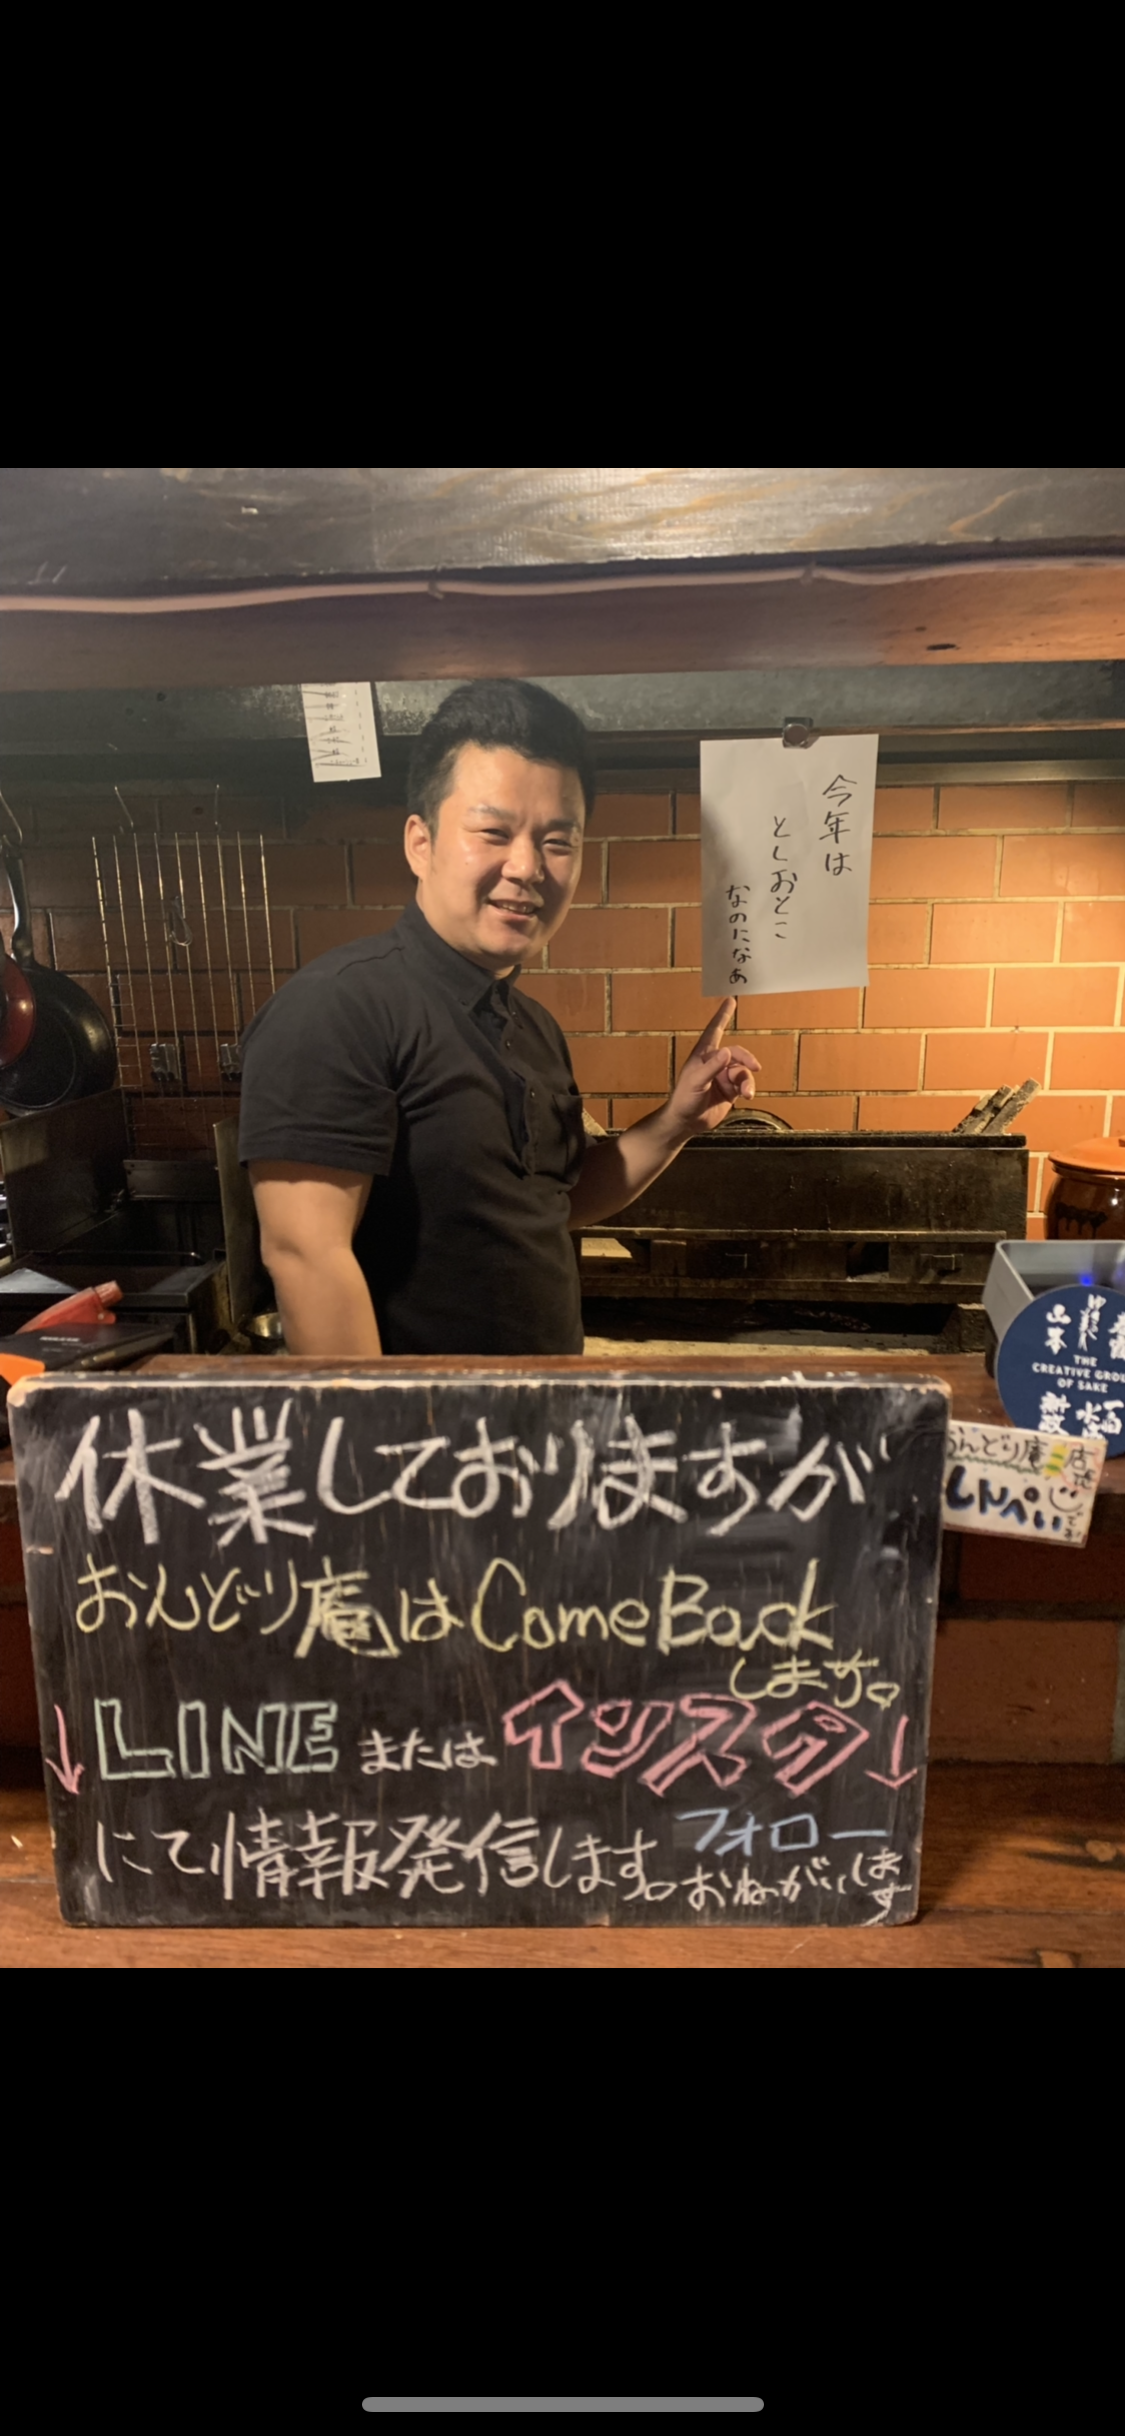 今年は
としおとこ
なのになあ
休業しておりますが
おんどり庵はComeBack
します。
↓LINEまたはインスタ↓
にて情報発信します。フォロー
おねがいします
山本
ゆきの美人
THE
CREATIVE GROU
OF SAKE
んどり庵
店
しんぺい